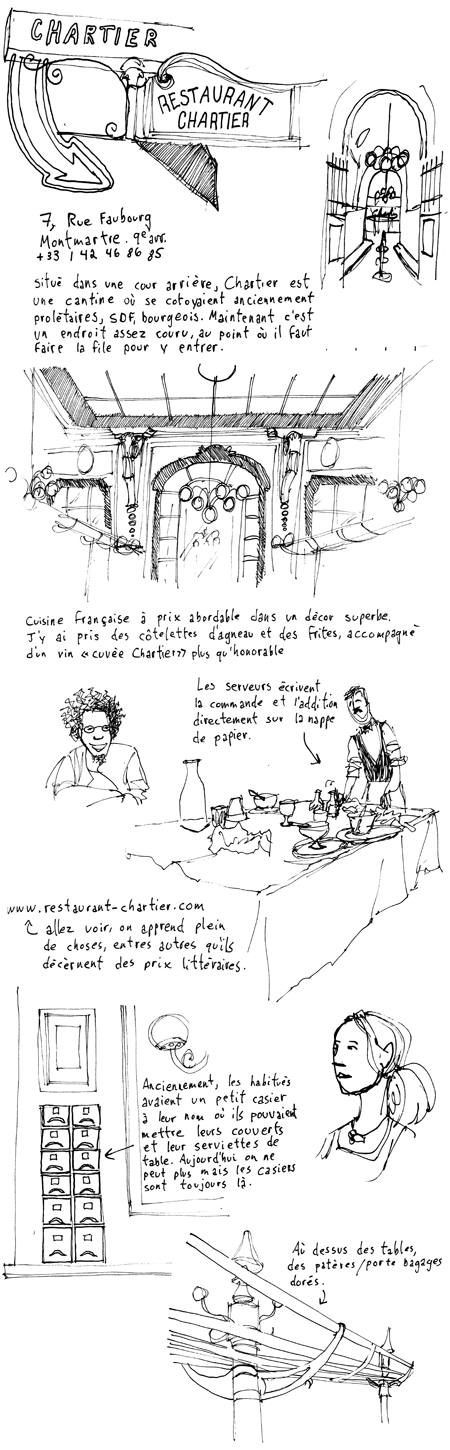 CHARTIER
RESTAURANT
CHARTIER
7, Rue Faubourg
Montmartre. 9e arr.
+33 1 42 46 86 85
Situé dans une cour arrière, Chartier est
une cantine où se cotoyaient anciennement
prolétaires, SDF, bourgeois. Maintenant c'est
un endroit assez couru, au point où il faut
faire la file pour y entrer.
Cuisine française à prix abordable dans un décor superbe.
J'y ai pris des côtelettes d'agneau et des frites, accompagné
d'un vin «cuvée Chartier» plus qu'honorable
Les serveurs écrivent
la commande et l'addition
directement sur la nappe
de papier.
www.restaurant-chartier.com
allez voir, on apprend plein
de choses, entres autres qu'ils
décèrnent des prix littéraires.
Anciennement, les habitués
avaient un petit casier
à leur nom où ils pouvaient
mettre leurs couverts
et leur serviettes de
table. Aujourd'hui on ne
peut plus mais les casiers
sont toujours là.
Aù dessus des tables,
des patères/porte bagages
dorés.